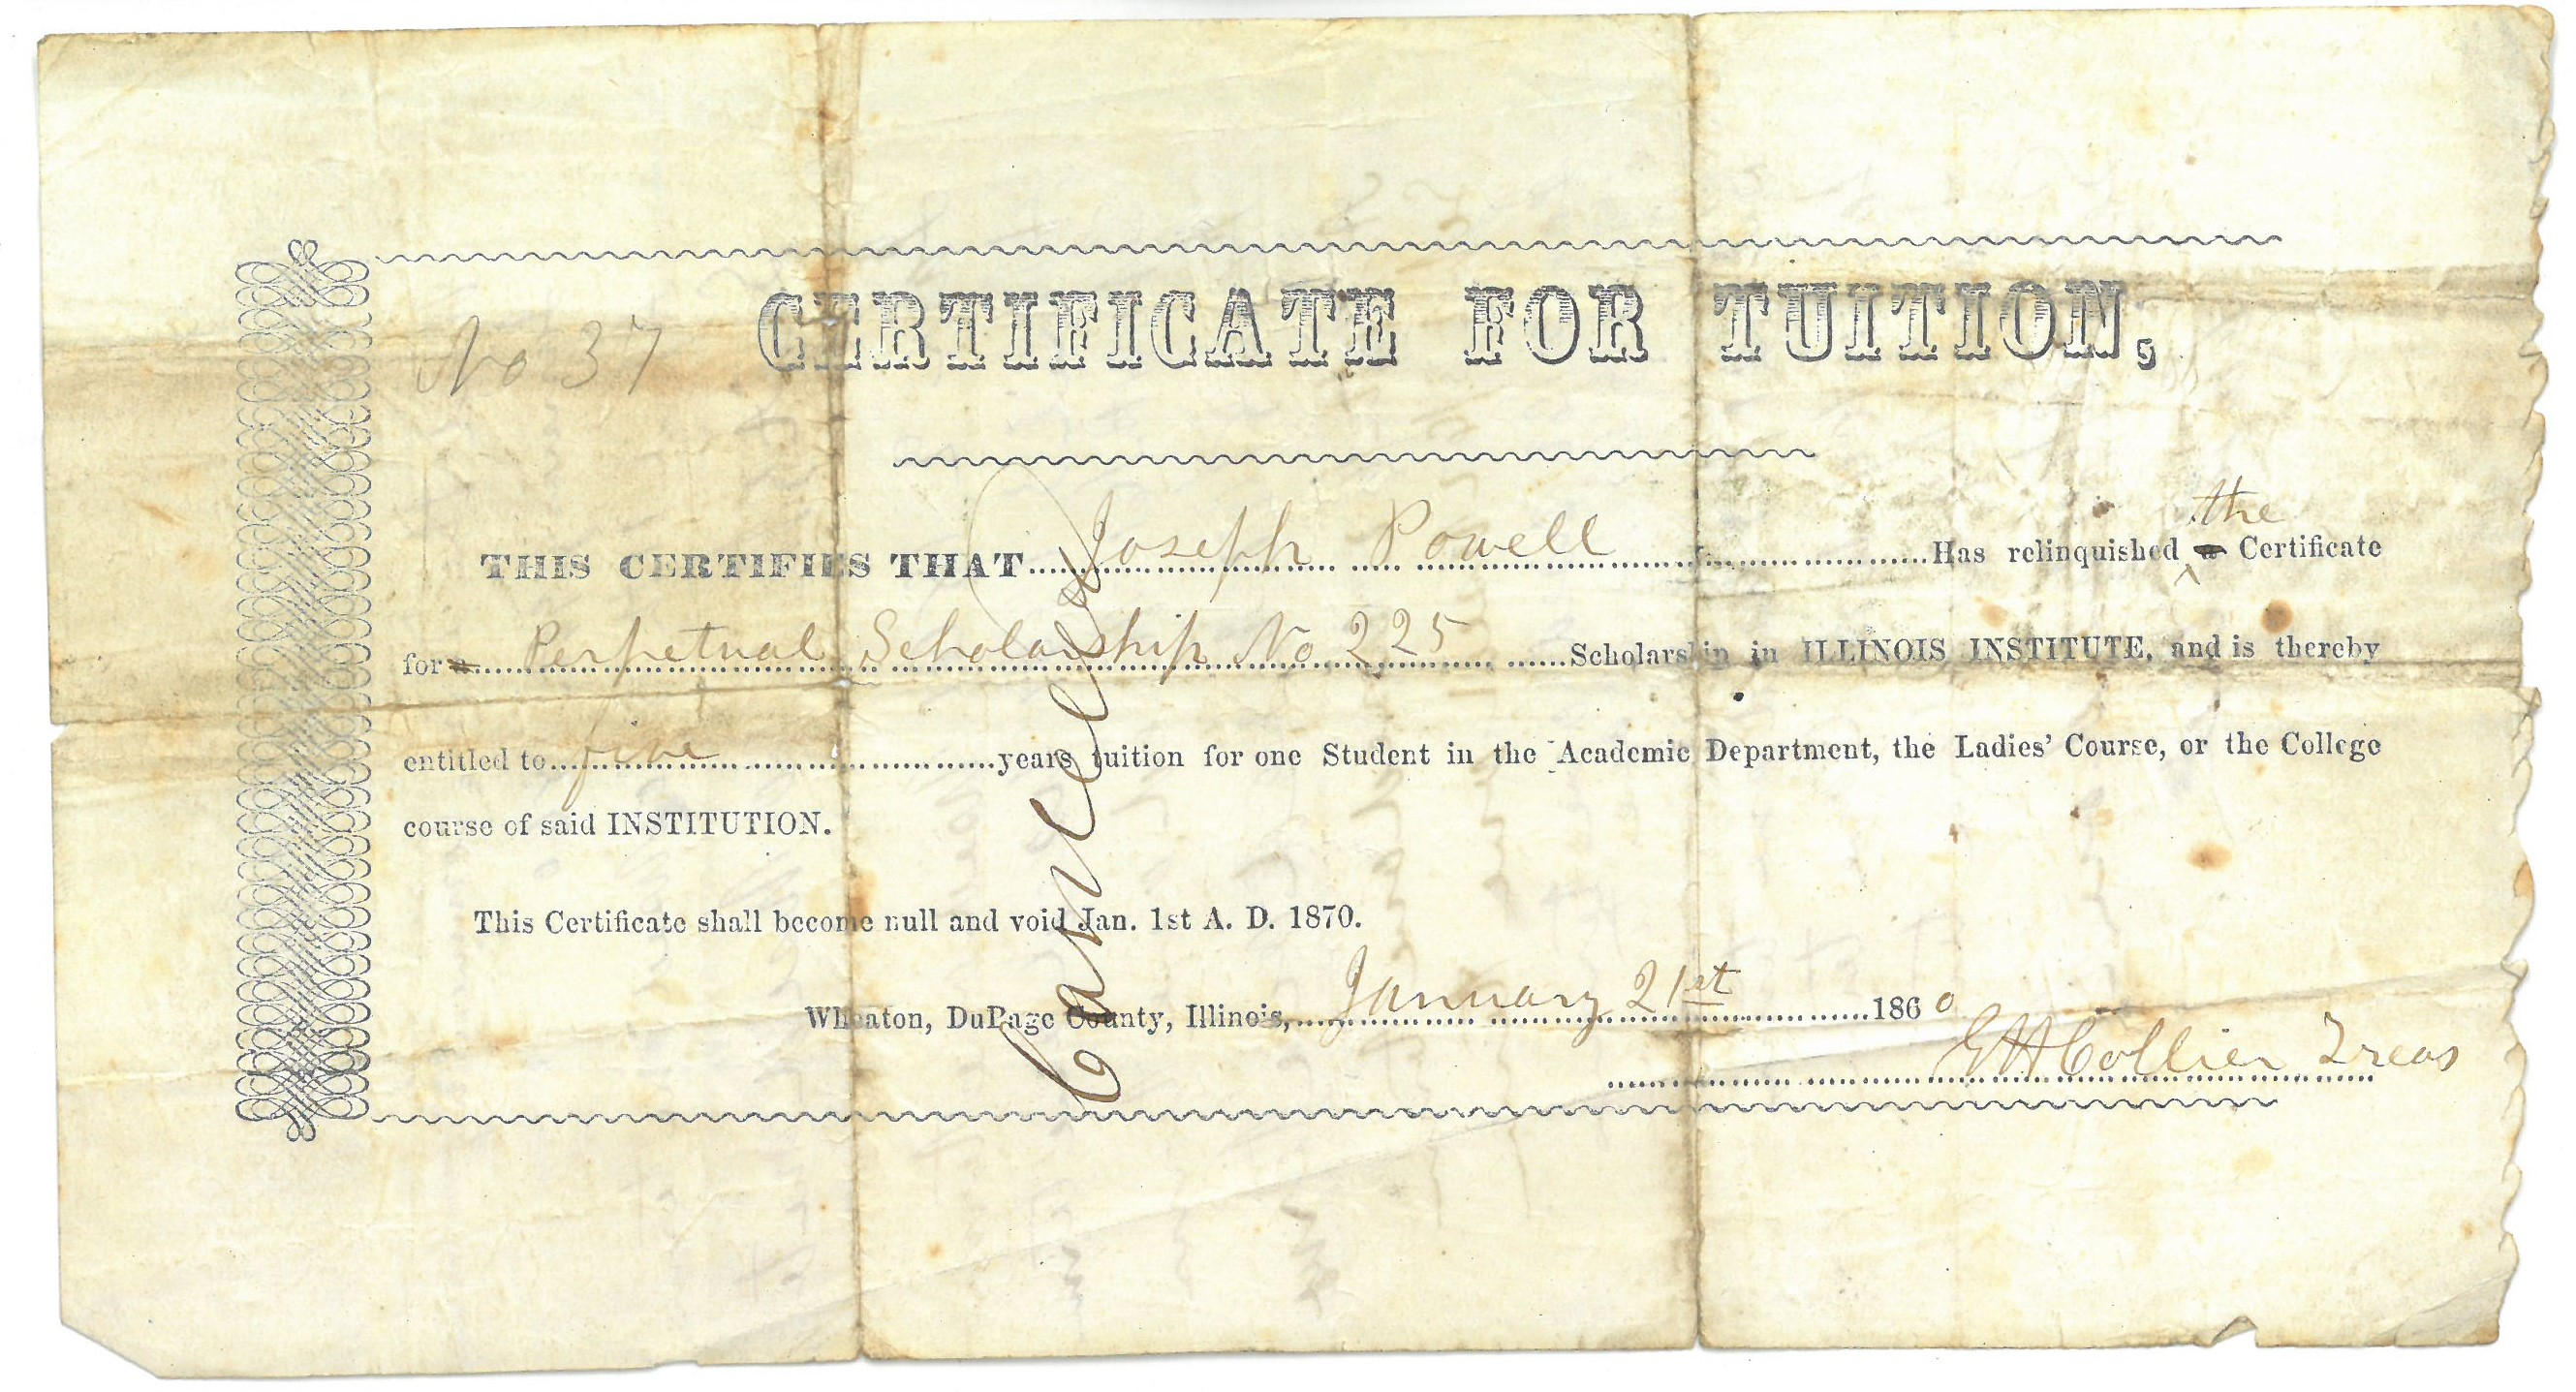 No 37 CERTIFICATE FOR TUITION,
THIS CERTIFIES THAT Joseph Powell Has relinquished the Certificate
for Perpetual Scholarship No 225 Scholarship in ILLINOIS INSTITUTE, and is thereby
entitled to five years tuition for one Student in the Academic Department, the Ladies' Course, or the College
course of said INSTITUTION.
This Certificate shall become null and void Jan. 1st A. D. 1870.
Wheaton, DuPage County, Illinois, January 21st 1860
E H Collier Treas
Cancelled